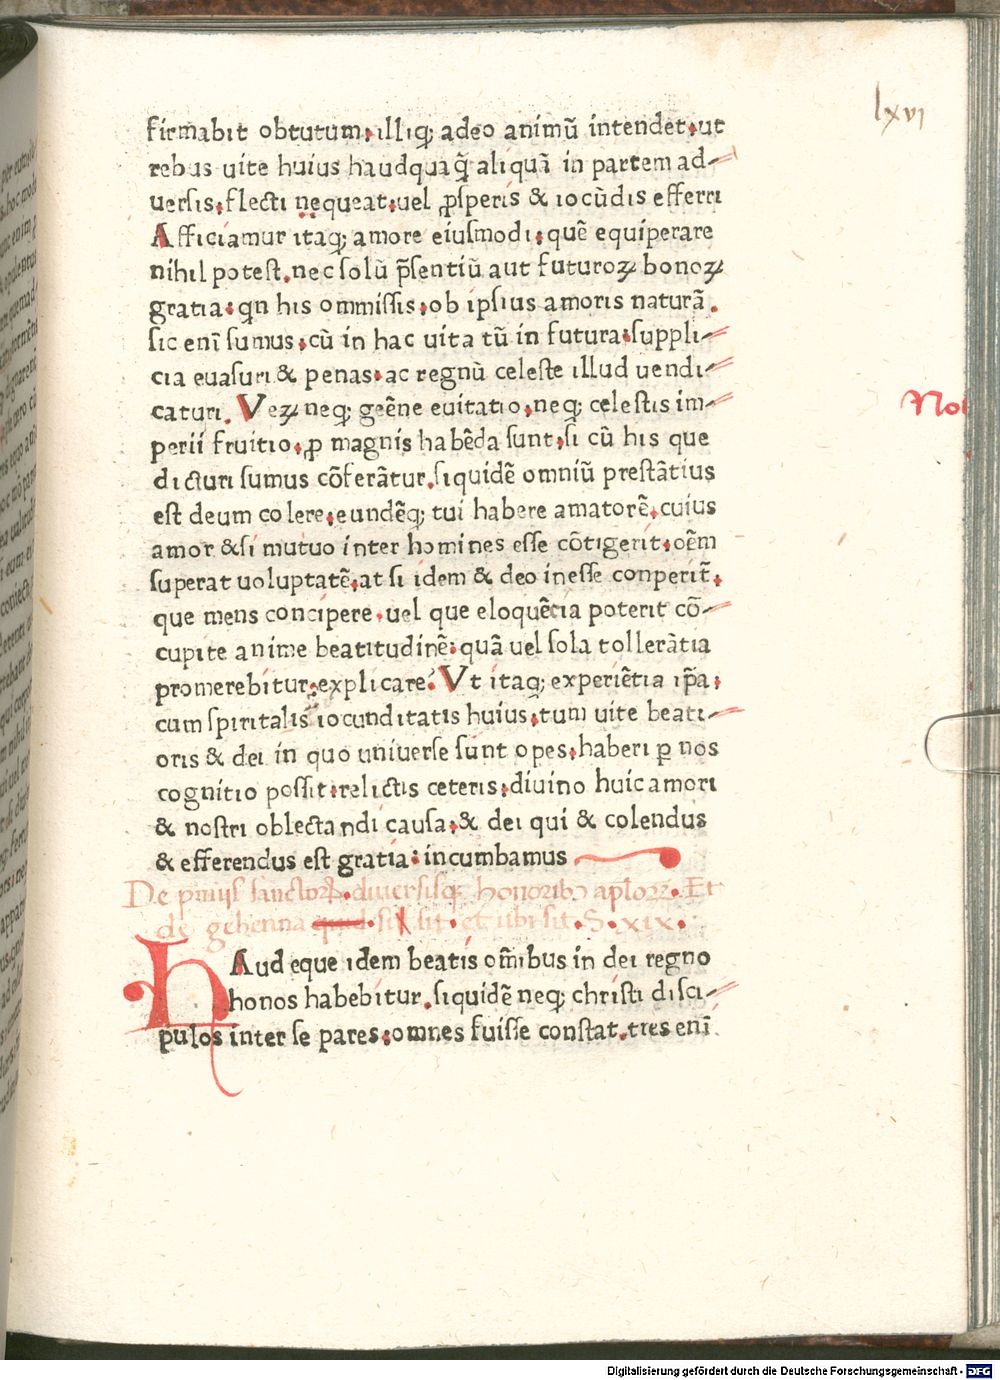 lxvi
firmabit obtutum, illiq; adeo animū intendet, ut
rebus uite huius haudquaq̄ aliquā in partem ad⸗
uersis, flecti nequeat, uel ꝓsperis & iocūdis efferri
Afficiamur itaq; amore eiusmodi, quē equiperare
nihil potest. nec solū p̄sentiū aut futuroꝝ bonoꝝ
gratia, qn his ommissis, ob ipsius amoris naturā.
sic eni̅ sumus, cū in hac uita tū in futura, suppli⸗
cia euasuri & penas, ac regnū celeste illud uendi⸗
caturi. Veꝝ neq; geēne euitatio, neq; celestis im⸗
perii fruitio, ꝓ magnis habēda sunt, si cū his que
dicturi sumus cōferātur. siquidē omniū prestātius
est deum colere, eundēq; tui habere amatorē, cuius
amor & si mutuo inter homines esse cōtigerit, oēm
superat uoluptatē, at si idem & deo inesse conperit̄,
que mens concipere, uel que eloquētia poterit cō⸗
cupite anime beatitudinē, quā uel sola tollerātia
promerebitur, explicare? Vt itaq; experiētia ip̄a,
cum spiritalis iocunditatis huius, tum uite beati⸗
oris & dei in quo uniuerse sunt opes, haberi ꝑ nos
cognitio possit, relictis ceteris, diuino huic amori
& nostri oblectandi causa, & dei qui & colendus
& efferendus est gratia, incumbamus
De p̄mijs sanctoꝝ. diuersisq; honoribꝰ apl̄oꝝ. Et
de gehenna quid sit et ubi sit. S. xix.
HAud eque idem beatis om̄ibus in dei regno
honos habebitur. siquidē neq; christi disci⸗
pulos inter se pares, omnes fuisse constat. tres eni̅
Digitalisierung gefördert durch die Deutsche Forschungsgemeinschaft - DFG